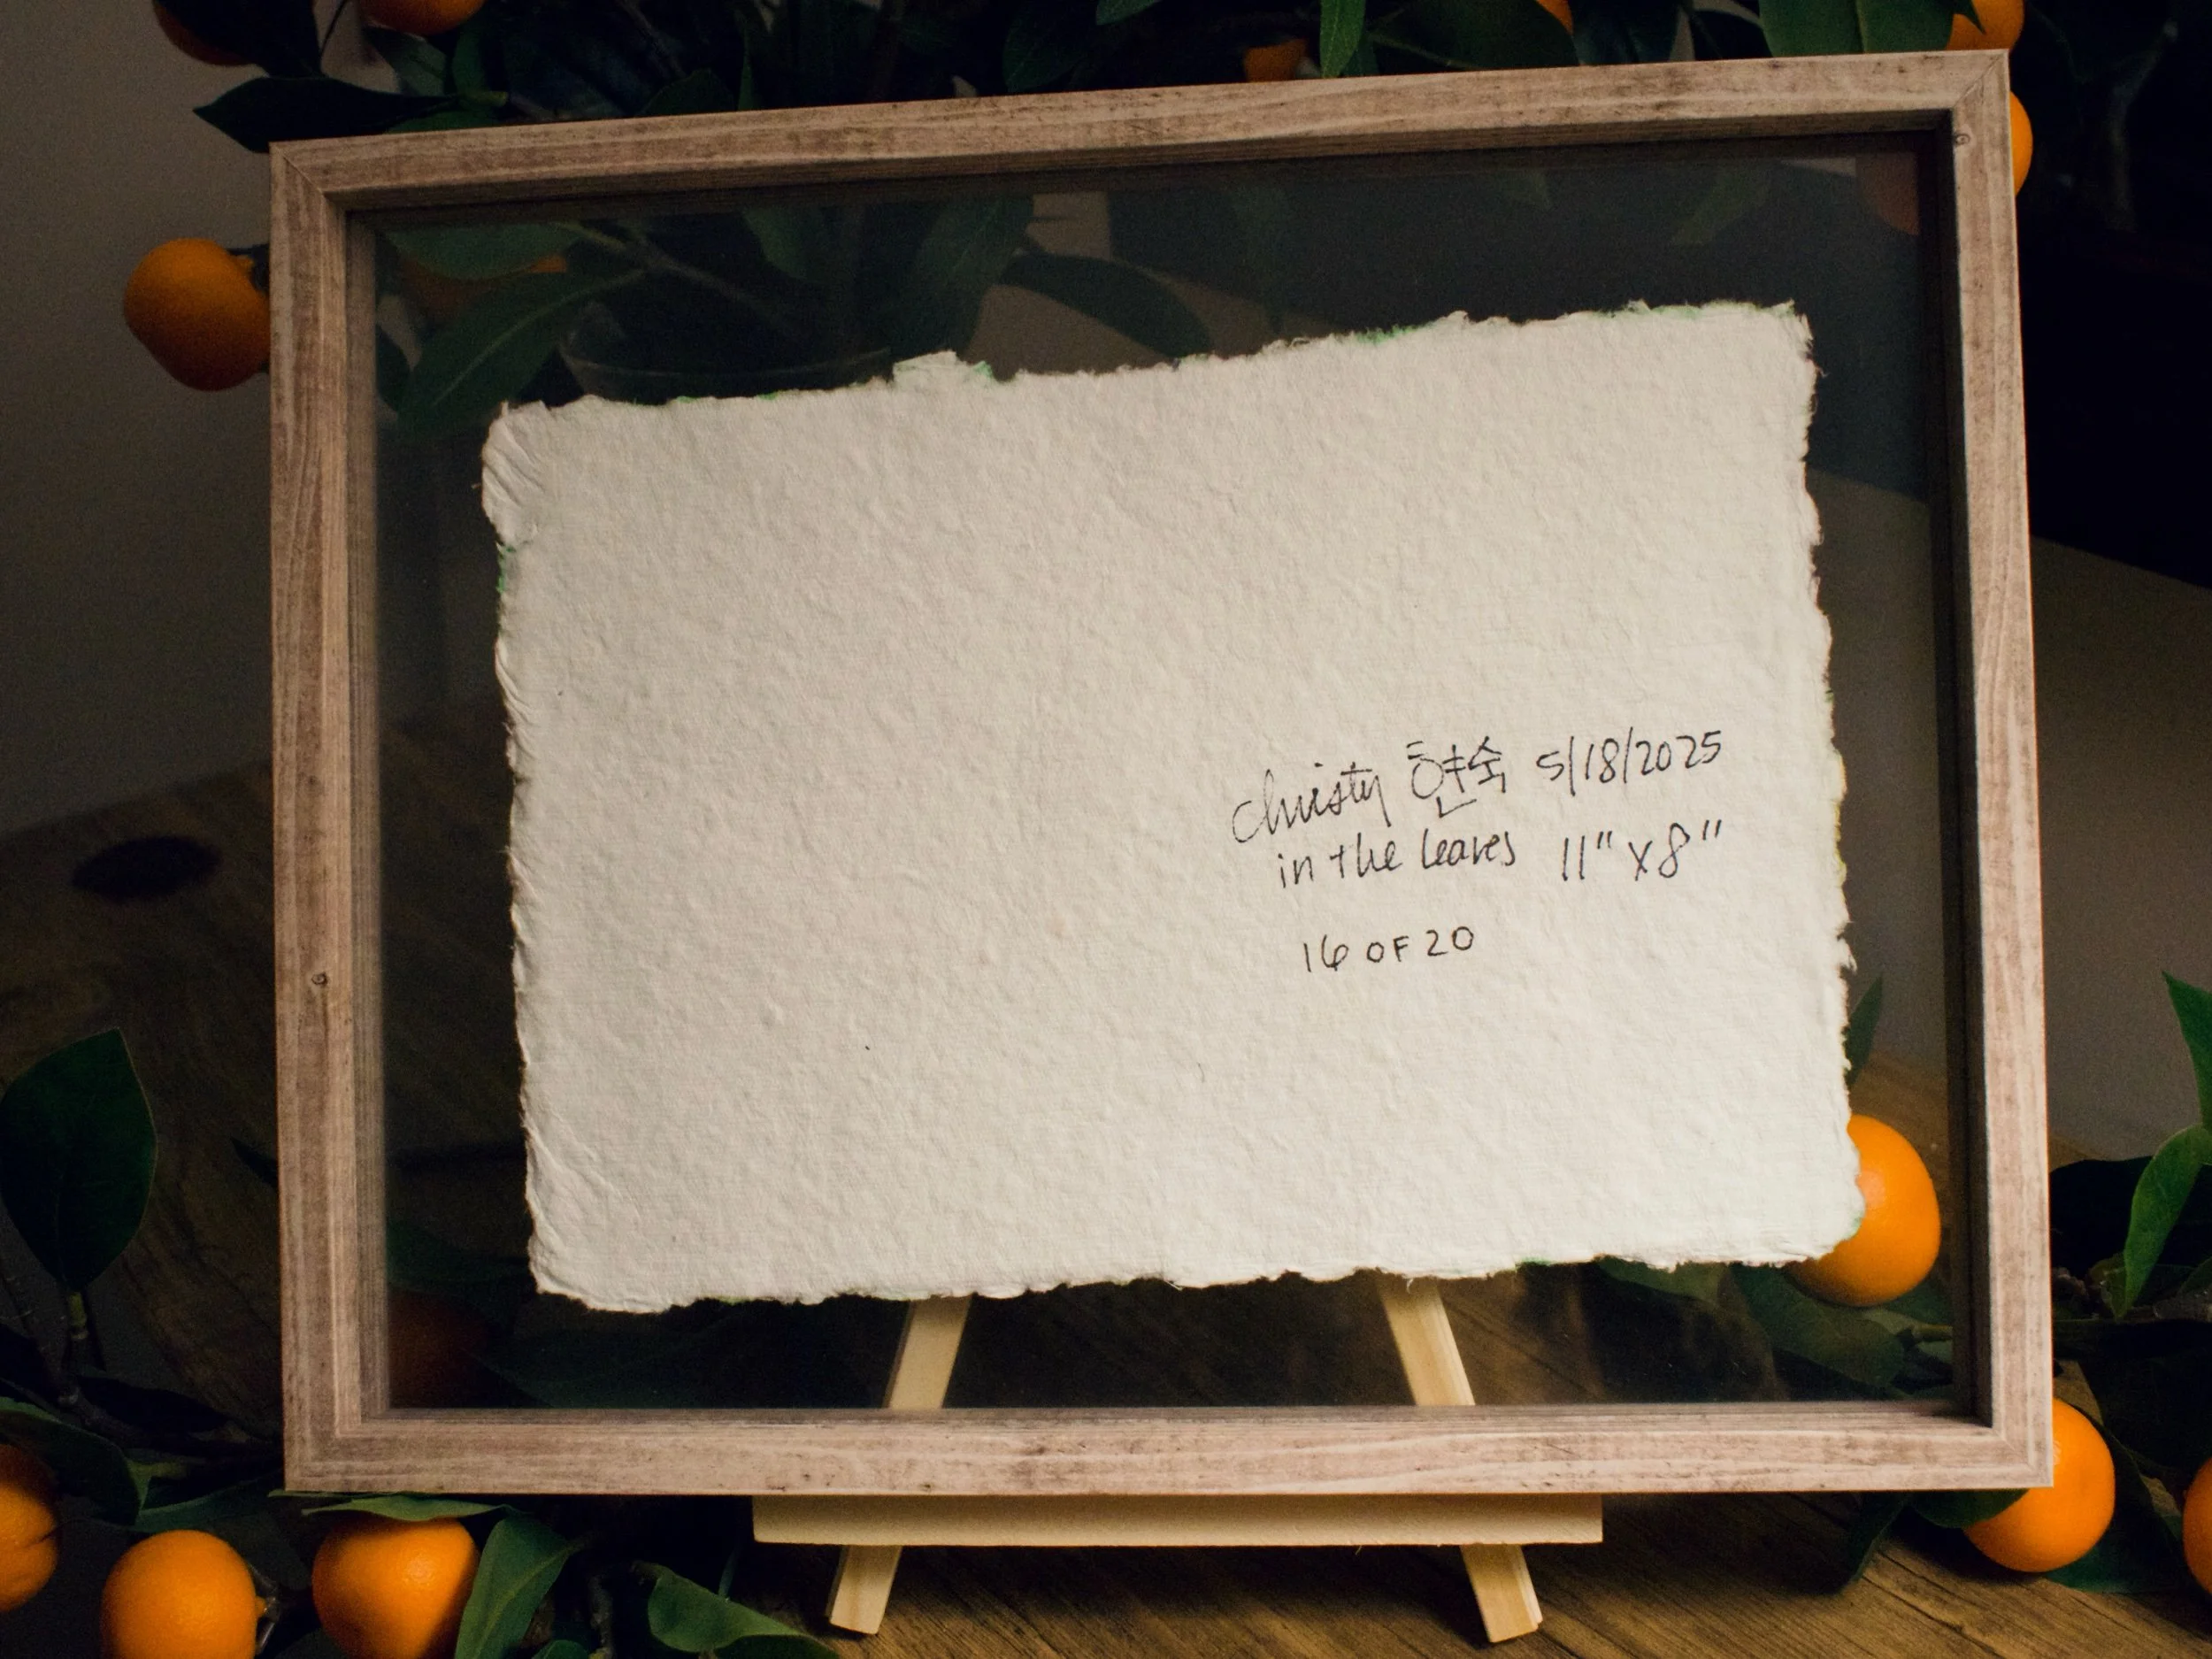 Christy 현숙 5/18/2025
in the leaves 11" x 8"
16 OF 20